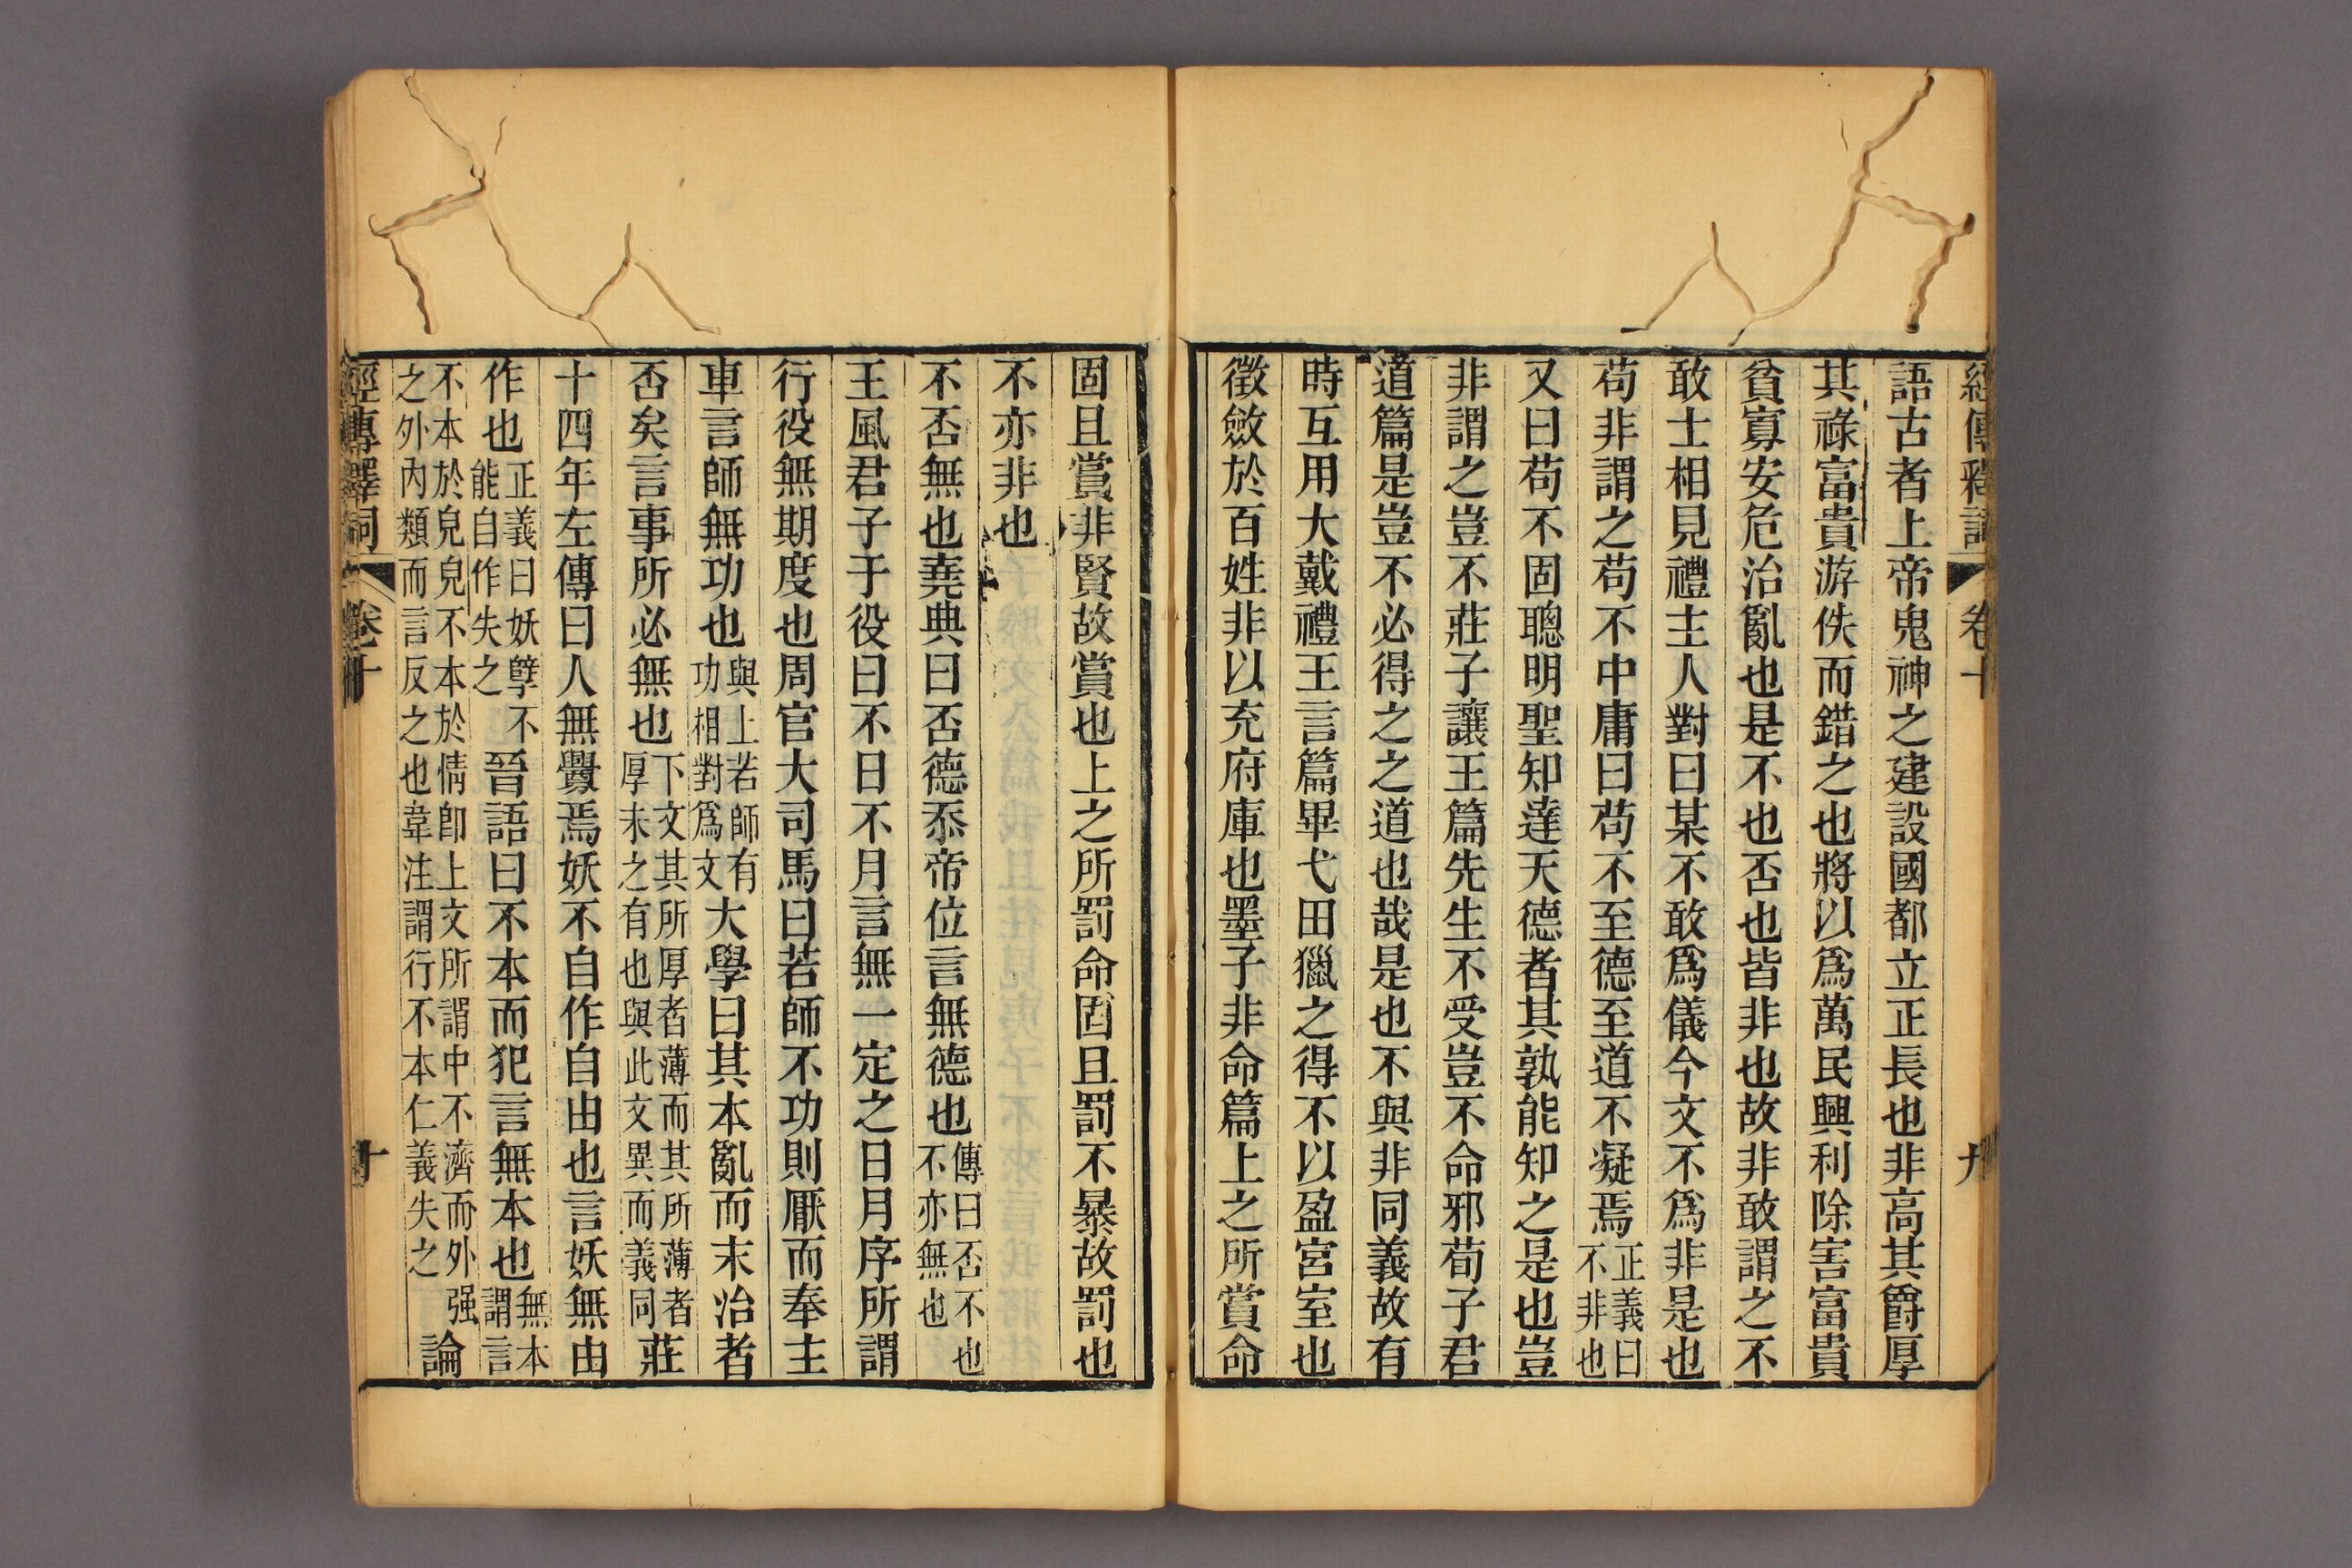 經傳釋詞 卷十 九
語古者上帝鬼神之建設國都立正長也非高其爵厚
其祿富貴游佚而錯之也將以爲萬民興利除害富貴
貧寡安危治亂也是不也否也皆非也故非敢謂之不
敢士相見禮主人對曰某不敢爲儀今文不爲非是也
苟非謂之苟不中庸曰苟不至德至道不凝焉正義曰不非也
又曰苟不固聰明聖知達天德者其孰能知之是也豈
非謂之豈不莊子讓王篇先生不受豈不命邪荀子君
道篇是豈不必得之之道也哉是也不與非同義故有
時互用大戴禮王言篇畢弋田獵之得不以盈宮室也
徵斂於百姓非以充府庫也墨子非命篇上之所賞命
固且賞非賢故賞也上之所罰命固且罰不暴故罰也
不亦非也
不否無也堯典曰否德忝帝位言無德也傳曰否不也不亦無也
王風君子于役曰不日不月言無一定之日月序所謂
行役無期度也周官大司馬曰若師不功則厭而奉主
車言師無功也與上若師有功相對爲文大學曰其本亂而末治者
否矣言事所必無也下文其所厚者薄而其所薄者厚未之有也與此文異而義同莊
十四年左傳曰人無釁焉妖不自作自由也言妖無由
作也正義曰妖孽不能自作失之晉語曰不本而犯言無本也無本謂言
不本於皃皃不本於情卽上文所謂中不濟而外强之外內類而言反之也韋注謂行不本仁義失之論
經傳釋詞 卷十 十